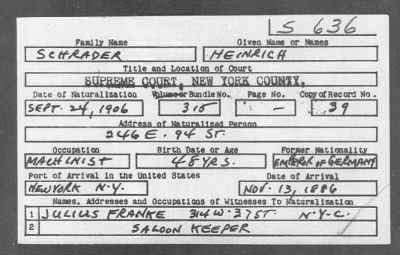 S 636
Family Name Given Name or Names
SCHRADER HEINRICH
Title and Location of Court
SUPREME COURT, NEW YORK COUNTY.
Date of Naturalization Volume or Bundle No. Page No. Copy of Record No.
SEPT. 24, 1906 315 — 39
Address of Naturalized Person
246 E. 94 ST.
Occupation Birth Date or Age Former Nationality
MACHINIST 48 YRS. EMPEROR OF GERMANY
Port of Arrival in the United States Date of Arrival
NEW YORK N.Y. NOV. 13, 1886
Names, Addresses and Occupations of Witnesses To Naturalization
1 JULIUS FRANKE 314 W. 37 ST. N.Y.C.
2 SALOON KEEPER